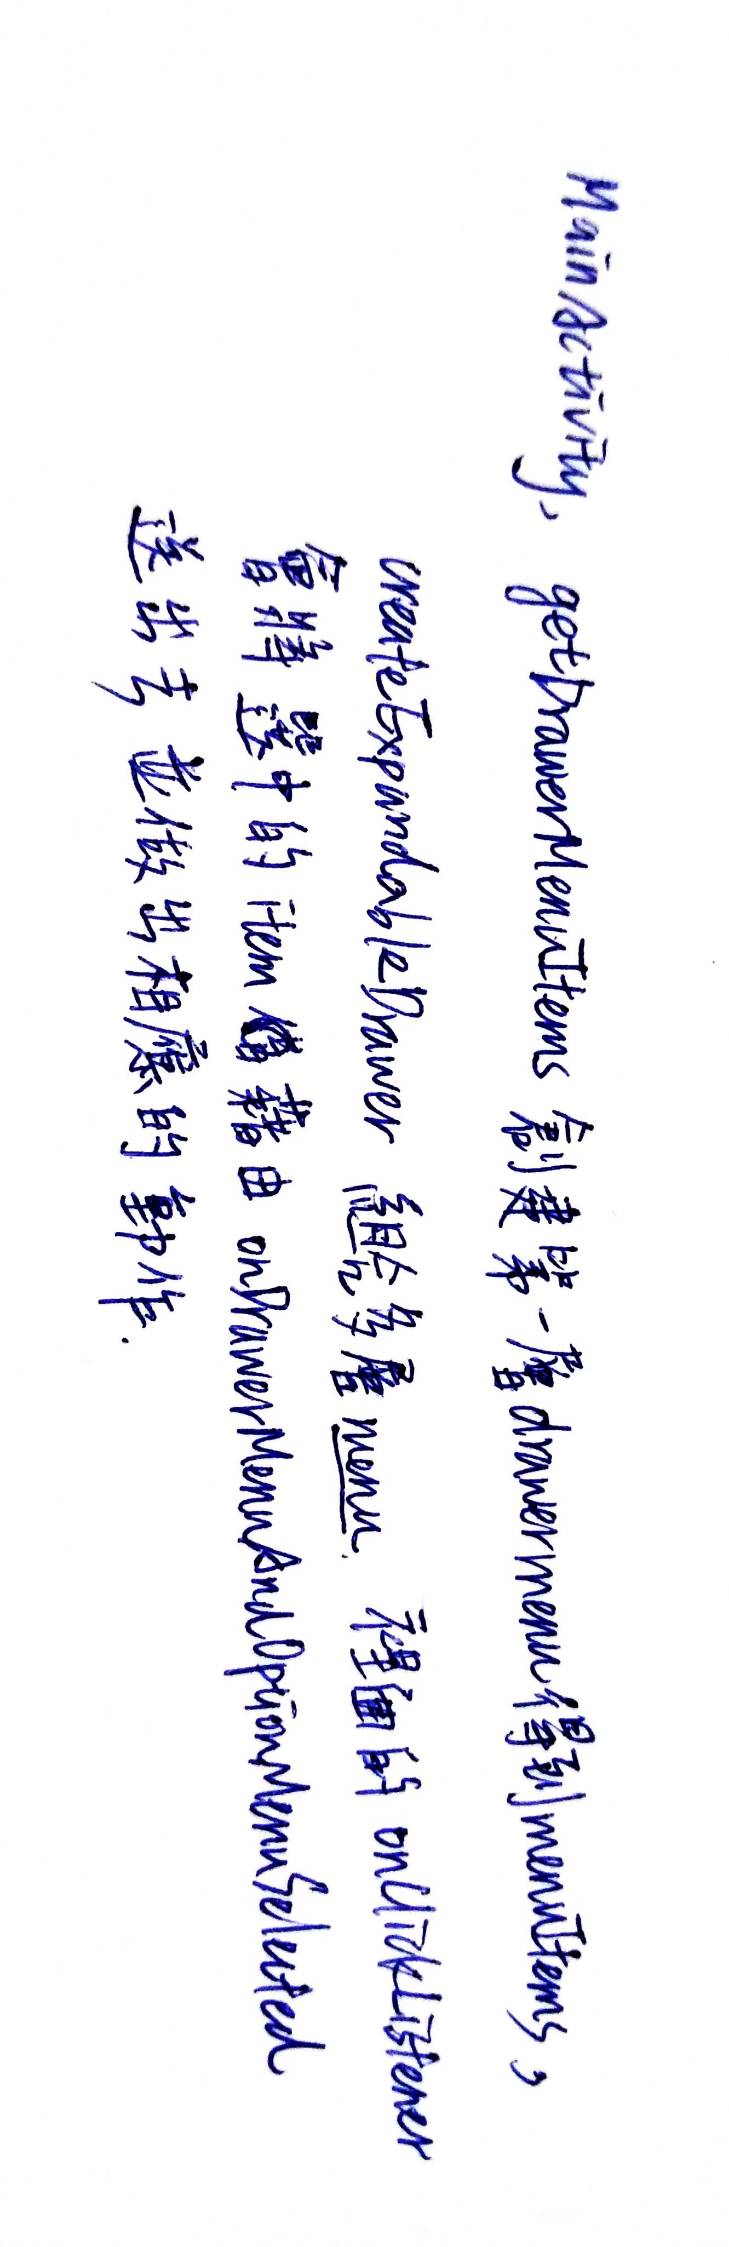 MainActivity, getDrawerMenuItems 創建第一層 drawermenu 得到 menuItems,
createExpandableDrawer 組合多層 menu. 裡面的 onClickListener
會將選中的 item 藉由 onDrawerMenuAndOptionMenuSelected
送出去並做出相應的動作.